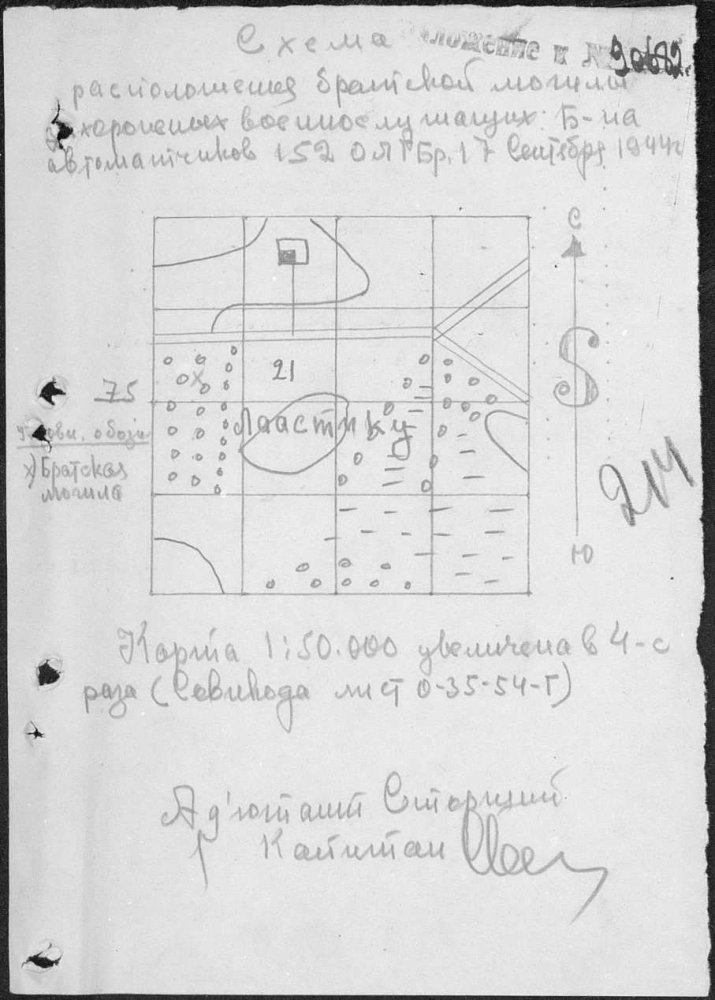 Схема
ложение к № 90682с.
расположения братской могилы
захороненых военнослужащих Б-на
автоматчиков 152 ОЯТБр. 17 Сентября 1944г
С
75
21
Лаастику
Условн. обозн
х) Братская
могила
214
Ю
Карта 1:50.000 увеличена в 4-с
раза (Совикода лист О-35-54-Г)
Ад'ютант Старший
Капитан